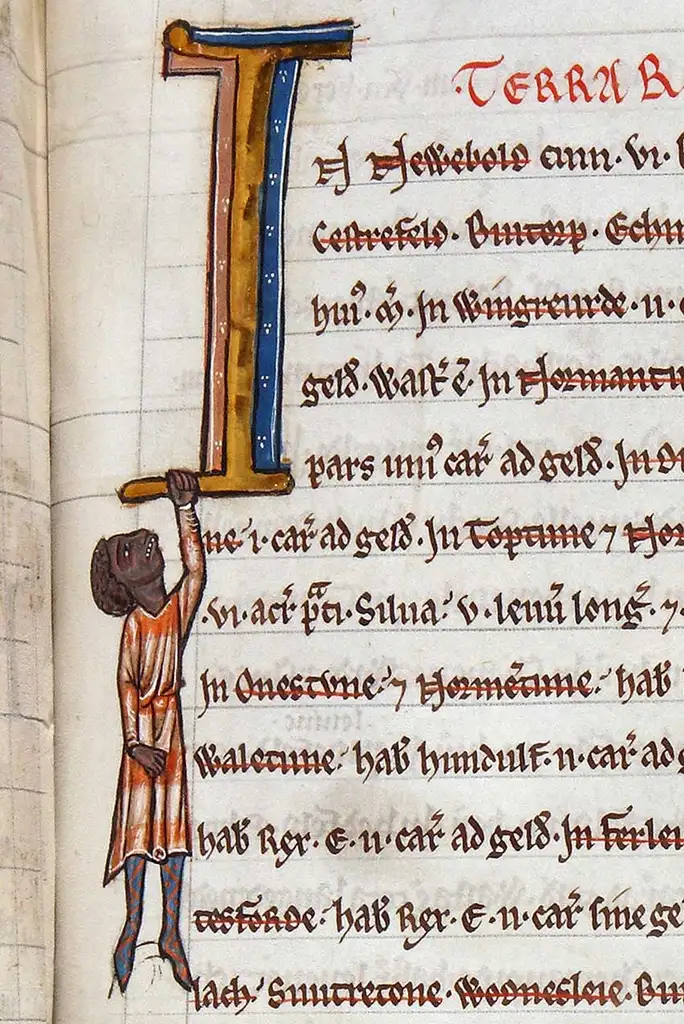 TERRA R
IN Newebold cum · vi · b
Cestrefeld · Buitorp · Echin
huiꝰ · ᴍ̃ · In Wingreurde · ii · c
geld̃ · Wast̃ ẽ · In Normantu
pars uniꝰ car̃ ad geld̃ · In
ne · i · car̃ ad geld̃ · In Toptune ⁊ Nor
· vi · acr̃ p̃ti · Silua · v · leuũ long̃ · ⁊ ·
In Onestune · ⁊ Normẽtune · hab̃
Waletune · hab̃ hundulf · ii · car̃ ad g
hab̃ Rex · E · ii · car̃ ad geld̃ · In Ferlei
tesforde · hab̃ Rex · E · ii · car̃ sine ge
lach · Snitretone · Wodneslei e · Bu